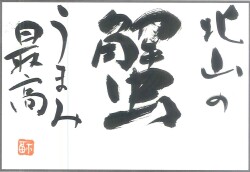 北山の
蟹
うまみ
最高